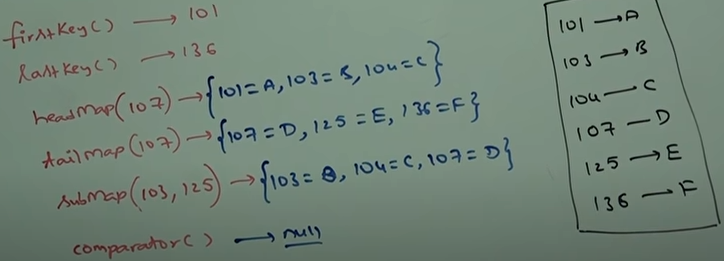 firstKey() → 101
lastKey() → 136
headMap(107) → {101=A, 103=B, 104=C}
tailMap(107) → {107=D, 125=E, 136=F}
subMap(103, 125) → {103=B, 104=C, 107=D}
comparator() → null
101 → A
103 → B
104 — C
107 — D
125 → E
136 → F